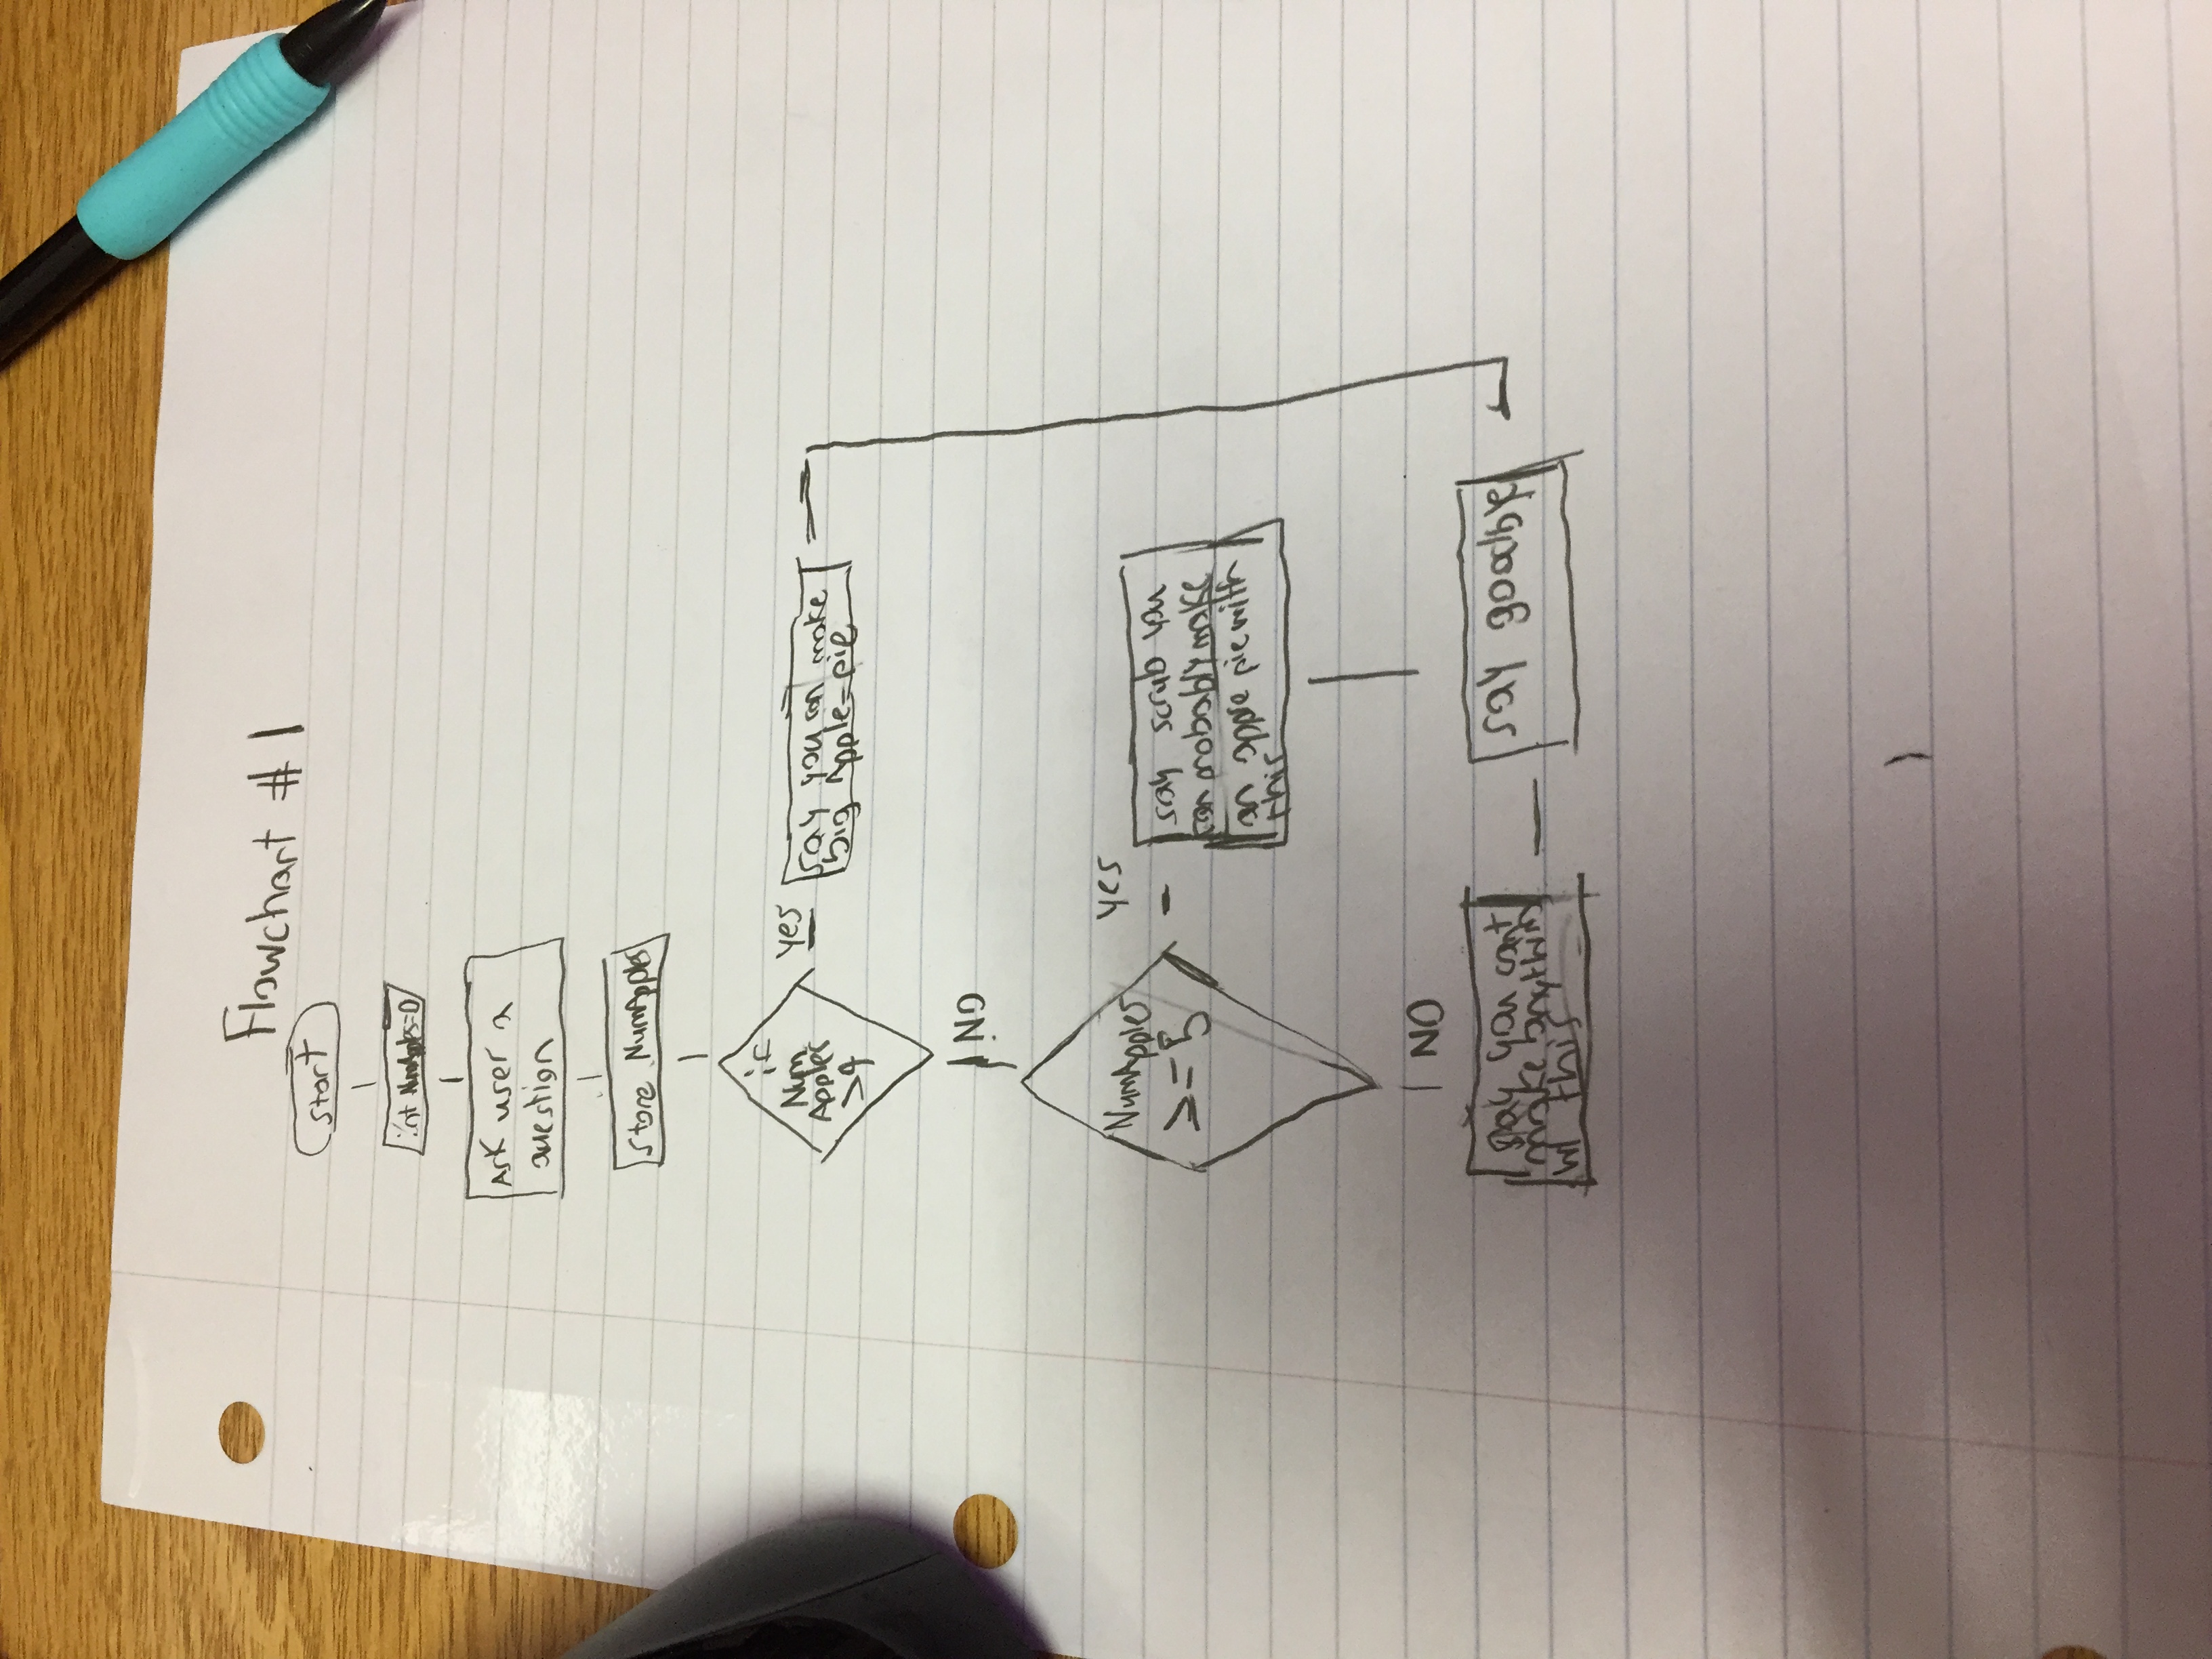 Flowchart #1
start
int NumApples=0
Ask user a
question
store NumApples
if
Num
Apples
>9
yes
say you can make
big Apple-pie
NO
NumApples
>=5
yes
say scrub you
can probably make
an apple pie with
this
NO
say you cant
make anything
w/ this
say goodbye